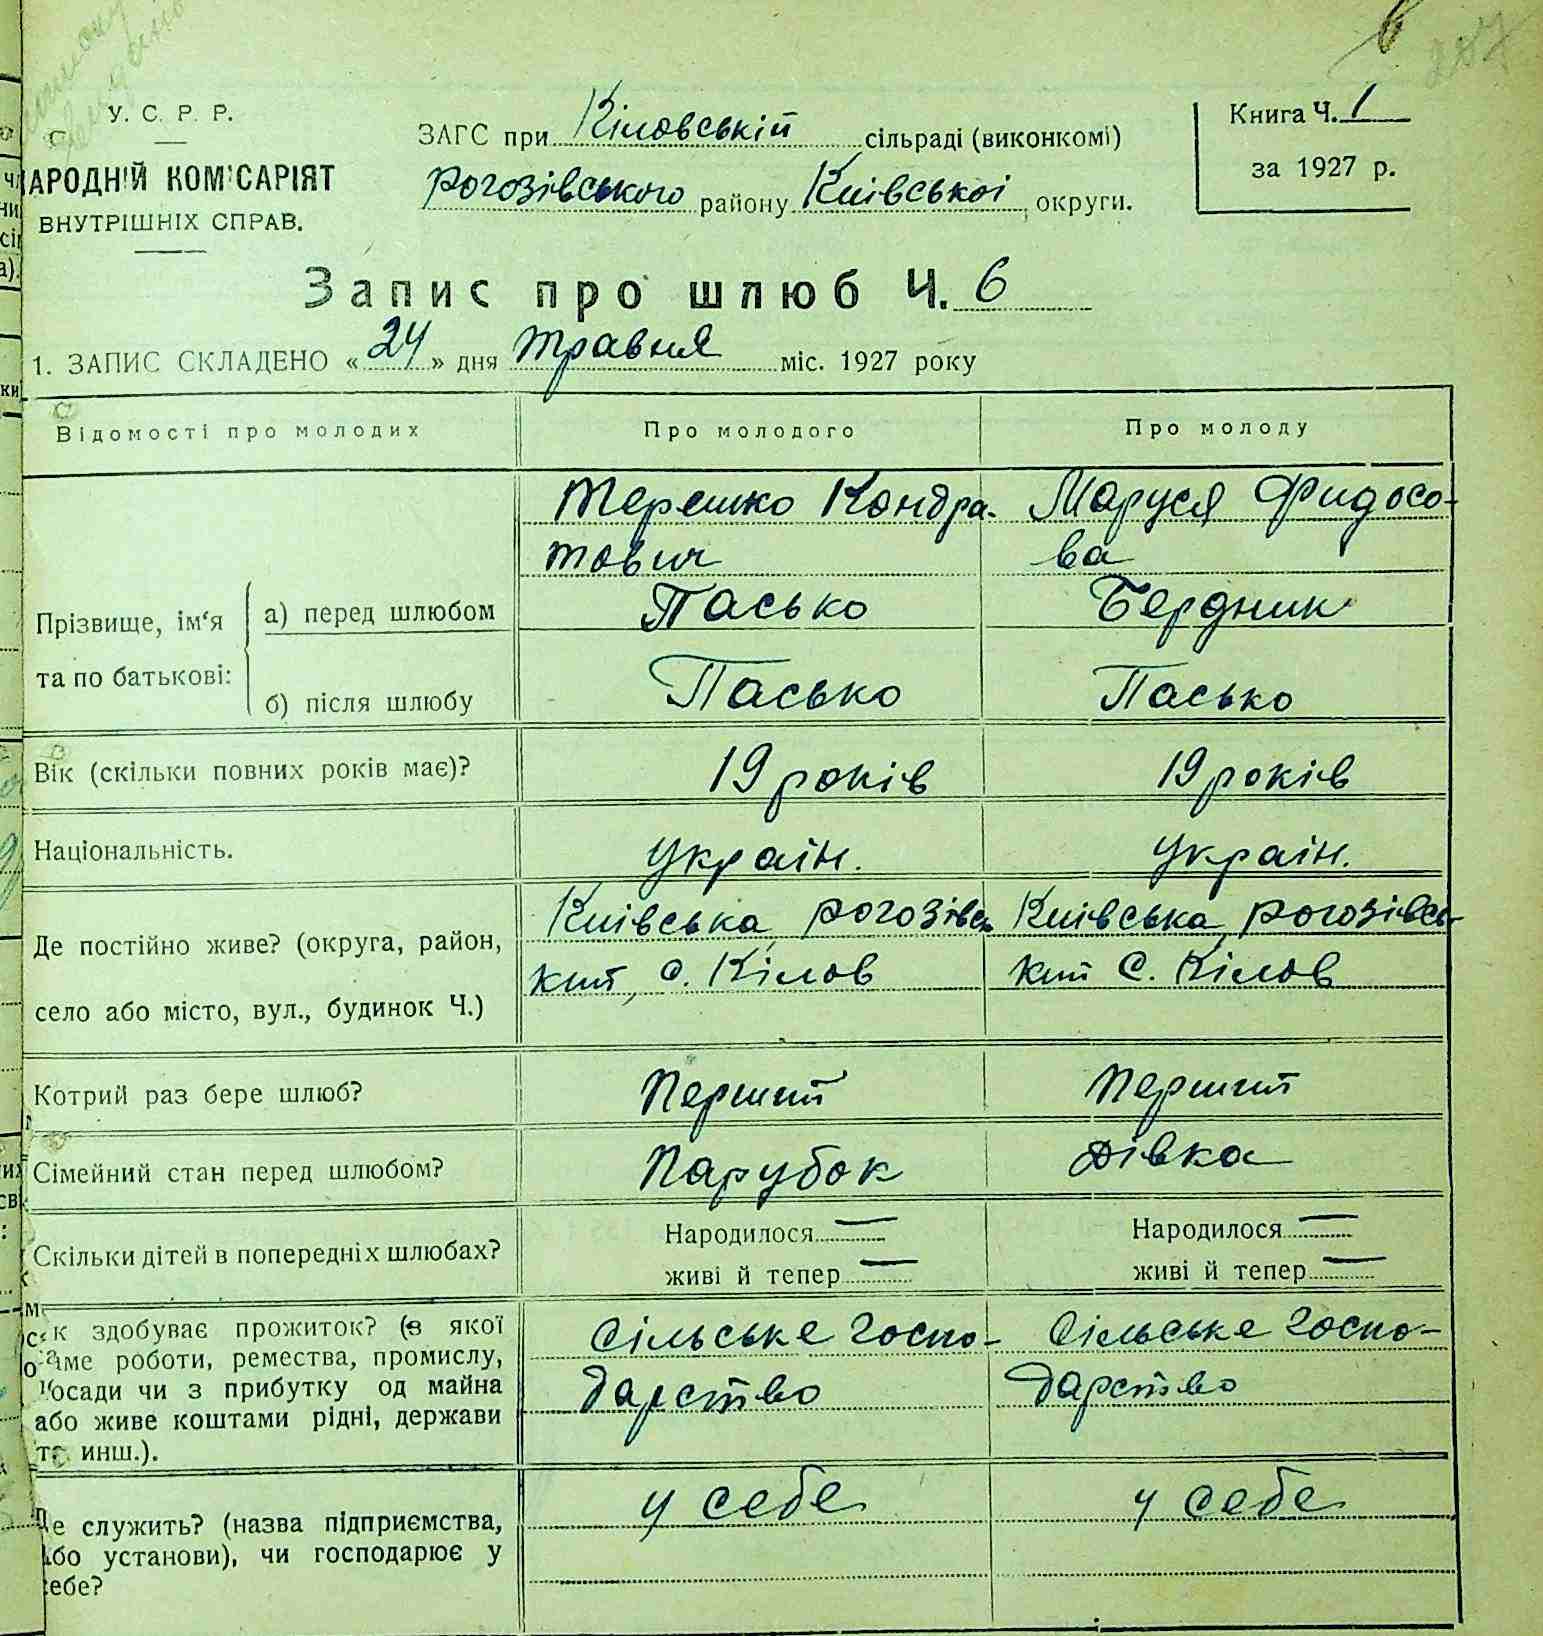 У. С. Р. Р.
АРОДНІЙ КОМІСАРІЯТ
ВНУТРІШНІХ СПРАВ.
ЗАГС при Кіловській сільраді (виконкомі)
Рогозівського району Київської округи.
Книга Ч. 1
за 1927 р.
Запис про шлюб Ч. 6
1. ЗАПИС СКЛАДЕНО «24» дня травня міс. 1927 року
Відомості про молодих
Про молодого
Про молоду
Прізвище, ім'я та по батькові:
а) перед шлюбом
Терешко Кондра-
тович
Пасько
Маруся Фидосо-
ва
Бердник
б) після шлюбу
Пасько
Пасько
Вік (скільки повних років має)?
19 років
19 років
Національність.
Україн.
Україн.
Де постійно живе? (округа, район,
село або місто, вул., будинок Ч.)
Київська, Рогозівсь
кий, с. Кілов
Київська, Рогозівсь-
кий с. Кілов
Котрий раз бере шлюб?
Перший
Перший
Сімейний стан перед шлюбом?
Парубок
Дівка
Скільки дітей в попередніх шлюбах?
Народилося —
живі й тепер —
Народилося —
живі й тепер —
к здобуває прожиток? (з якої
аме роботи, ремества, промислу,
осади чи з прибутку од майна
або живе коштами рідні, держави
та инш.).
Сільське госпо-
дарство
Сільське госпо-
дарство
е служить? (назва підприємства,
або установи), чи господарює у
себе?
у себе
у себе